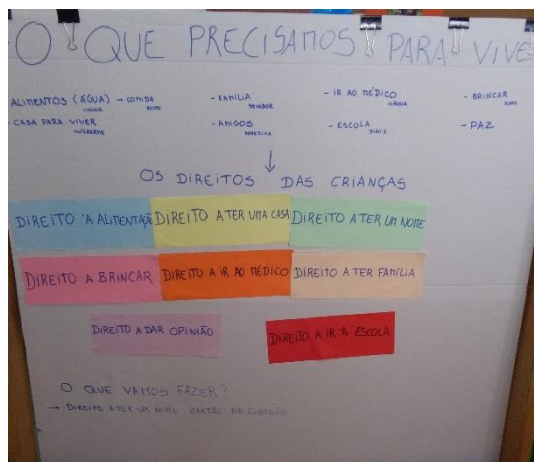 O QUE PRECISAMOS PARA VIVE
ALIMENTOS (ÁGUA) - COMIDA - FAMÍLIA - IR AO MÉDICO - BRINCAR
- CASA PARA VIVER - AMIGOS - ESCOLA - PAZ
GUILHERME
OS DIREITOS DAS CRIANÇAS
DIREITO À ALIMENTAÇÃO DIREITO A TER UMA CASA DIREITO A TER UM NOME
DIREITO A BRINCAR DIREITO A IR AO MÉDICO DIREITO A TER FAMÍLIA
DIREITO A DAR OPINIÃO DIREITO A IR À ESCOLA
O QUE VAMOS FAZER?
→ DIREITO A TER UM NOME: CARTÃO DE CIDADÃO